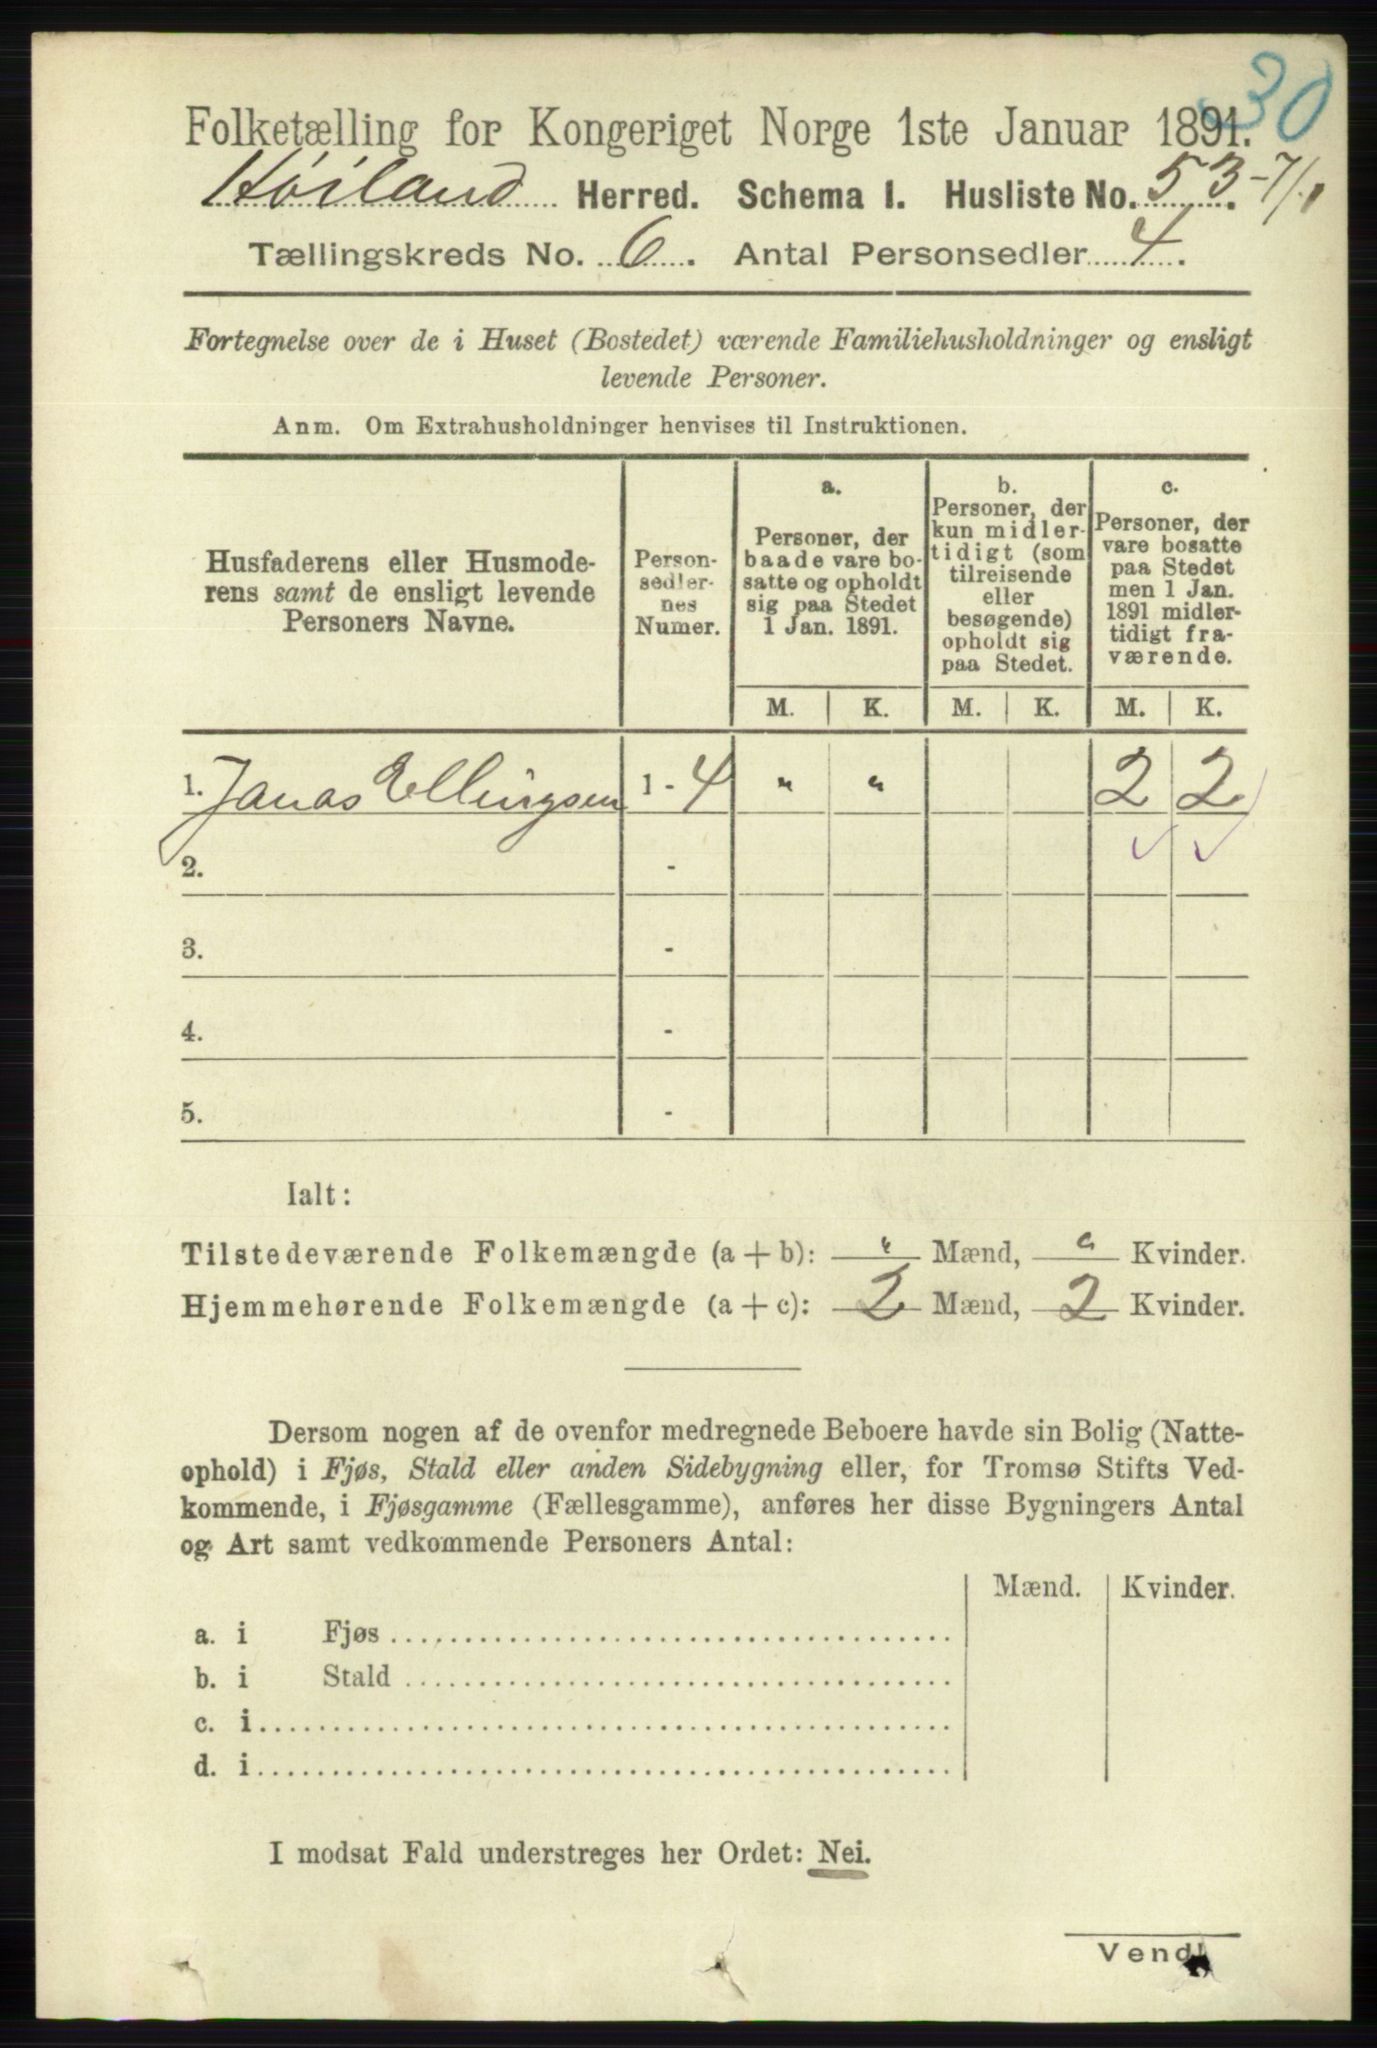 30
Folketælling for Kongeriget Norge 1ste Januar 1891.
Høiland Herred. Schema I. Husliste No. 53-7/1
Tællingskreds No. 6. Antal Personsedler 4.
Fortegnelse over de i Huset (Bostedet) værende Familiehusholdninger og ensligt
levende Personer.
Anm. Om Extrahusholdninger henvises til Instruktionen.
Husfaderens eller Husmode-
rens samt de ensligt levende
Personers Navne.
Person-
sedler-
nes
Numer.
a.
Personer, der
baade vare bo-
satte og opholdt
sig paa Stedet
1 Jan. 1891.
b.
Personer, der
kun midler-
tidigt (som
tilreisende
eller
besøgende)
opholdt sig
paa Stedet.
c.
Personer, der
vare bosatte
paa Stedet
men 1 Jan.
1891 midler-
tidigt fra-
værende.
M. K. M. K. M. K.
1. Janas Ellingsen 1 - 4 " " 2 2
2. -
3. -
4. -
5. -
Ialt:
Tilstedeværende Folkemængde (a + b): " Mænd, " Kvinder.
Hjemmehørende Folkemængde (a + c): 2 Mænd, 2 Kvinder.
Dersom nogen af de ovenfor medregnede Beboere havde sin Bolig (Natte-
ophold) i Fjøs, Stald eller anden Sidebygning eller, for Tromsø Stifts Ved-
kommende, i Fjøsgamme (Fællesgamme), anføres her disse Bygningers Antal
og Art samt vedkommende Personers Antal:
Mænd. Kvinder.
a. i Fjøs
b. i Stald
c. i
d. i
I modsat Fald understreges her Ordet: Nei.
Vend!